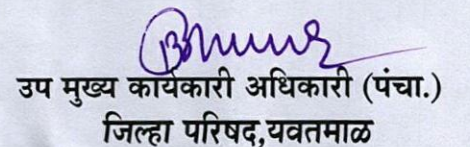 उप मुख्य कार्यकारी अधिकारी (पंचा.)
जिल्हा परिषद,यवतमाळ